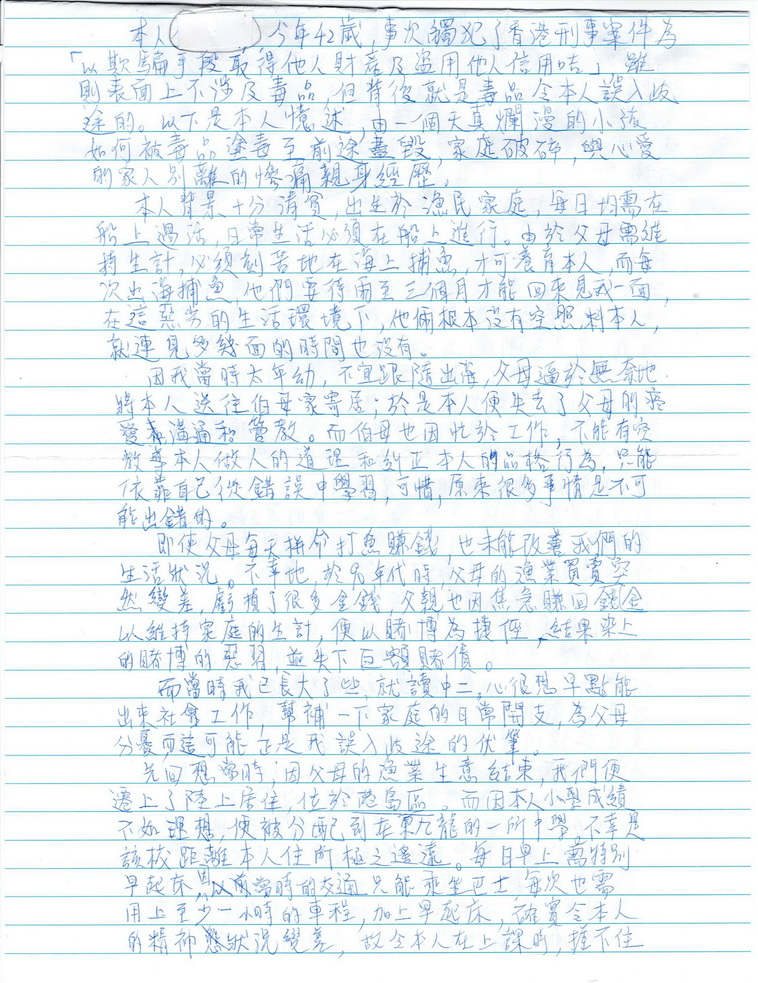 本人 今年42歲,事次觸犯了香港刑事案件為
「以欺騙手段取得他人財產及盜用他人信用咭」雖
則表面上不涉及毒品,但背後就是毒品令本人誤入歧
途的。以下是本人憶述,由一個天真爛漫的小孩
如何被毒品塗毒至前途盡毀,家庭破碎,與心愛
的家人別離的慘痛親身經歷。
本人背景十分清貧,出生於漁民家庭,每日均需在
船上過活,日常生活必須在船上進行。由於父母需維
持生計,必須刻苦地在海上捕魚,才可養育本人,而每
次出海捕魚,他們要待兩至三個月才能回來見我一面,
在這惡劣的生活環境下,他倆根本沒有空照料本人,
就連見多幾面的時間也沒有。
因我當時太年幼,不宜跟隨出海,父母逼於無奈地
將本人送往伯母家寄居;於是本人便失去了父母的疼
愛、溝通和管教。而伯母也因忙於工作,不能有空
教導本人做人的道理和糾正本人的品格行為,只能
依靠自己從錯誤中學習,可惜,原來很多事情是不可
能出錯的。
即使父母每天拼命打魚賺錢,也未能改善我們的
生活狀況。不幸地,於90年代時,父母的漁業買賣突
然變差,虧損了很多金錢,父親也因焦急賺回金錢
以維持家庭的生計,便以賭博為捷徑,結果染上
的賭博的惡習,並失下巨額賭債。
而當時我已長大了些,就讀中二,心很想早點能
出來社會工作,幫補一下家庭的日常開支,為父母
分憂而這可能正是我誤入歧途的伏筆。
先回想當時,因父母的漁業生意結束,我們便
遷上了陸上居住,位於港島區。而因本人小學成績
不如理想,便被分配到在東九龍的一所中學。不幸是
該校距離本人住所極之遙遠。每日早上需特別
早起床,因以前當時的交通只能乘坐巴士,每次也需
用上至少一小時的車程,加上早起床,確實令本人
的精神狀況變差,故令本人在上課時,捱不住